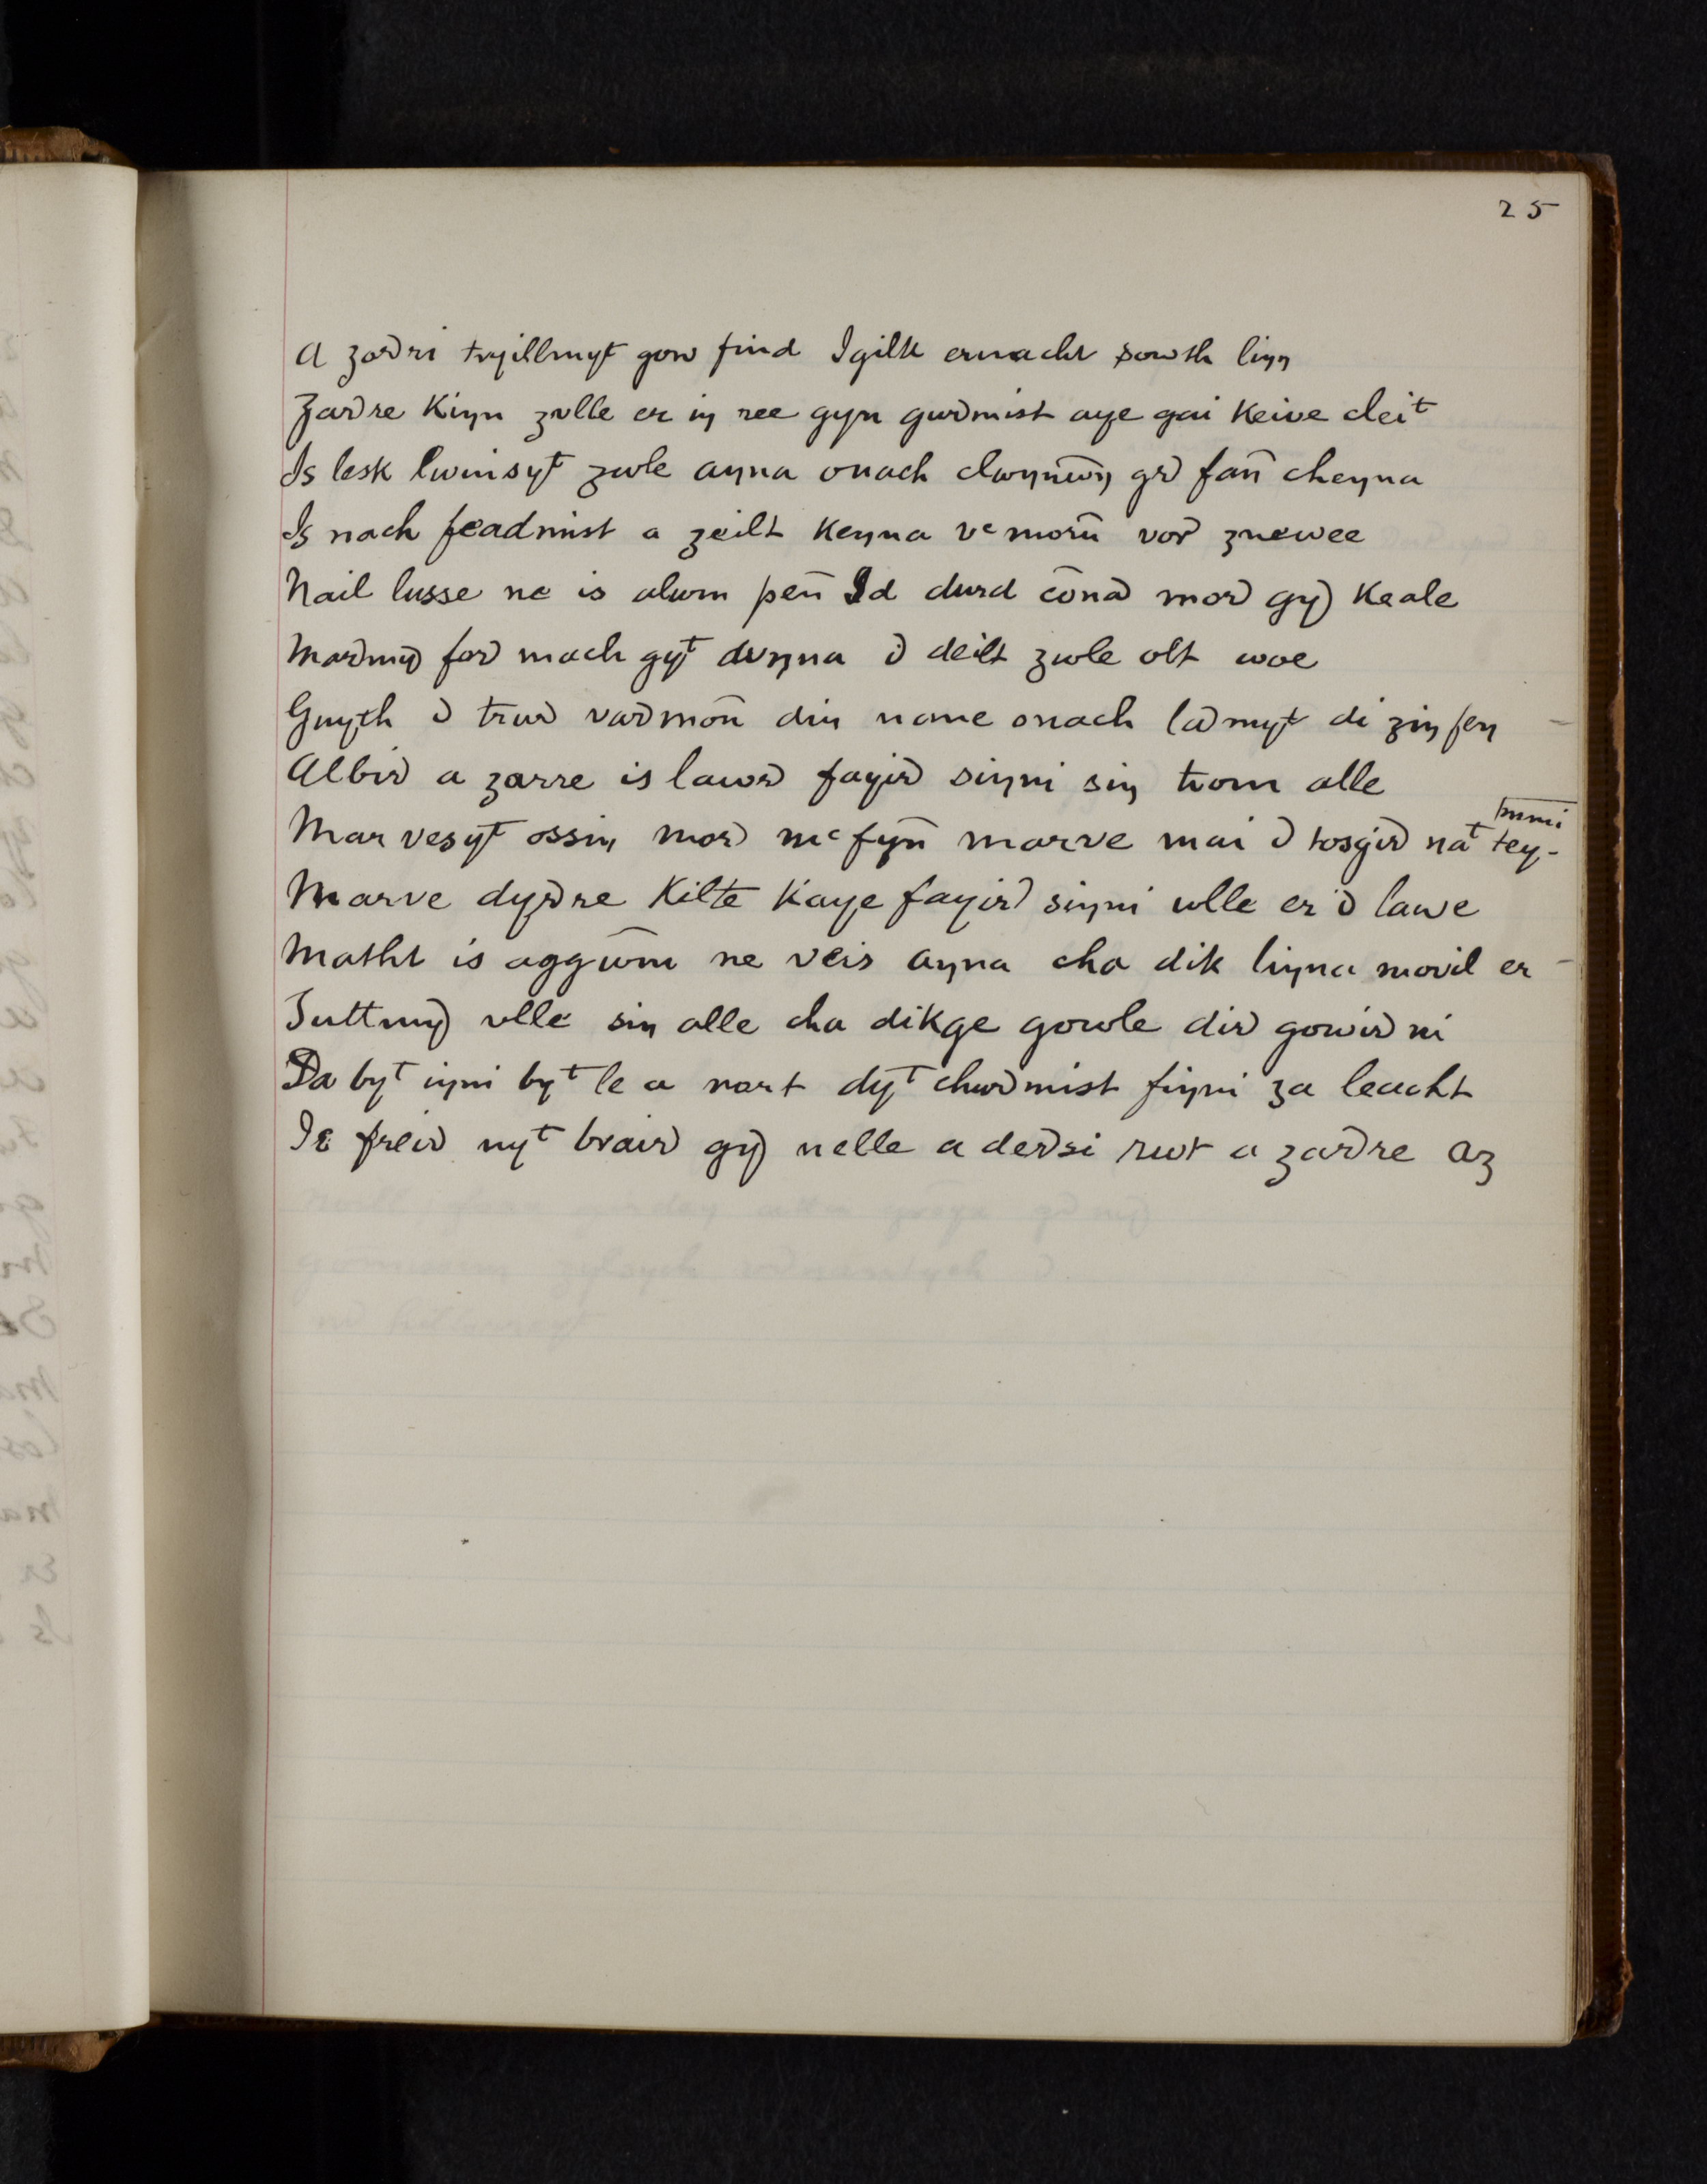 25
A zoꝺri tryillmyt gow find Igilk ernacht sowth linn
Zaꝺre Kiyn zulle er iŋ ree gyn guꝺmist aye gai Keive cleiᵗ
Is lesk lwinsyt zwle ayna onach clwynw̄n gꝺ fan̄ cheyna
Is nach feadmist a zeilt Keyna vᶜ morn̄ voꝺ znewee
Nail lusse ne is alwm pen̄ Id durd cōnaꝺ moꝺ gyꝺ Keale
Maꝺmyꝺ foꝺ mach gyᵗ duyna ꝺ deilt zwle olt woe
Gnyth ꝺ truꝺ vaꝺmōn din name onach laꝺmyt di ziŋ feŋ
Albiꝺ a zarre is lawꝺ fayiꝺ siyni siŋ trom alle
Mar vesyt ossiŋ moꝺ mᶜ fyn̄ marve mai ꝺ tosgiꝺ naᵗ tey-mmi
Marve dyꝺre Kilte Kaye fayiꝺ siyni ulle er ꝺ lawe
Matht is aggwm̄ ne veis ayna cha dik liyna movil er
Tuttmyꝺ vlle siŋ alle cha dikge gowle diꝺ gowiꝺ ni
Da byᵗ iyni byᵗ le a nart dyᵗ chuꝺmist fiyni za leacht
Is freiꝺ nyᵗ braiꝺ gyꝺ nelle a deꝺsi rwt a zaꝺre az